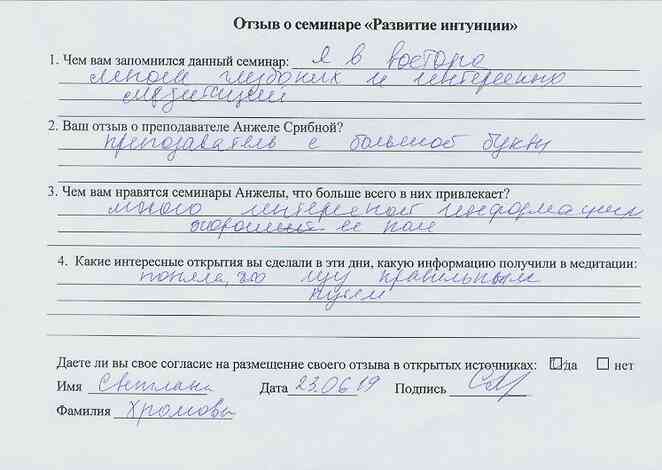 Отзыв о семинаре «Развитие интуиции»
1. Чем вам запомнился данный семинар: Я в восторге
много глубоких и интересных
медитаций
2. Ваш отзыв о преподавателе Анжеле Срибной?
преподаватель с большой буквы
3. Чем вам нравятся семинары Анжелы, что больше всего в них привлекает?
много интересной информации
ее
4. Какие интересные открытия вы сделали в эти дни, какую информацию получили в медитации:
поняла, что иду правильным
путем
Даете ли вы свое согласие на размещение своего отзыва в открытых источниках: да нет
Имя Светлана Дата 23.06.19 Подпись
Фамилия Хромова